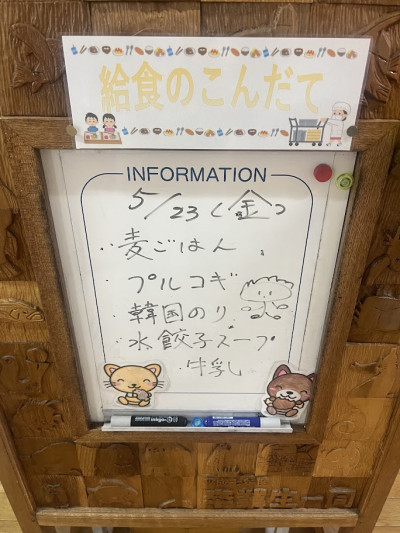 給食のこんだて
INFORMATION
5/23(金)
・麦ごはん
・プルコギ
・韓国のり
・水餃子スープ
・牛乳